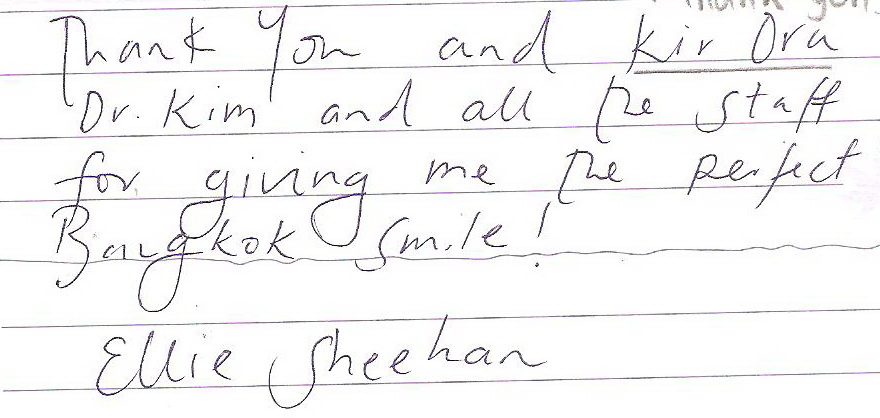 Thank you
Thank You and Kir Ora
Dr. Kim and all the staff
for giving me the perfect
Bangkok Smile!
Ellie Sheehan